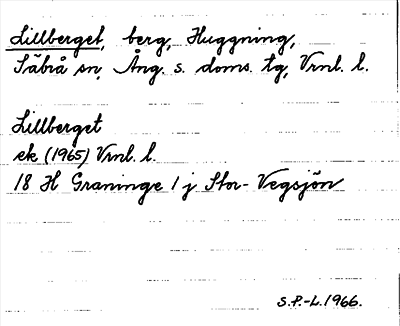 Lillberget, berg, Huggning,
Säbrå sn, Ång. s. doms. tg, Vrnl. l.
Lillberget
ek (1965) Vrnl. l.
18 H Graninge 1 j Stor-Vegsjön
S.P.-L. 1966.